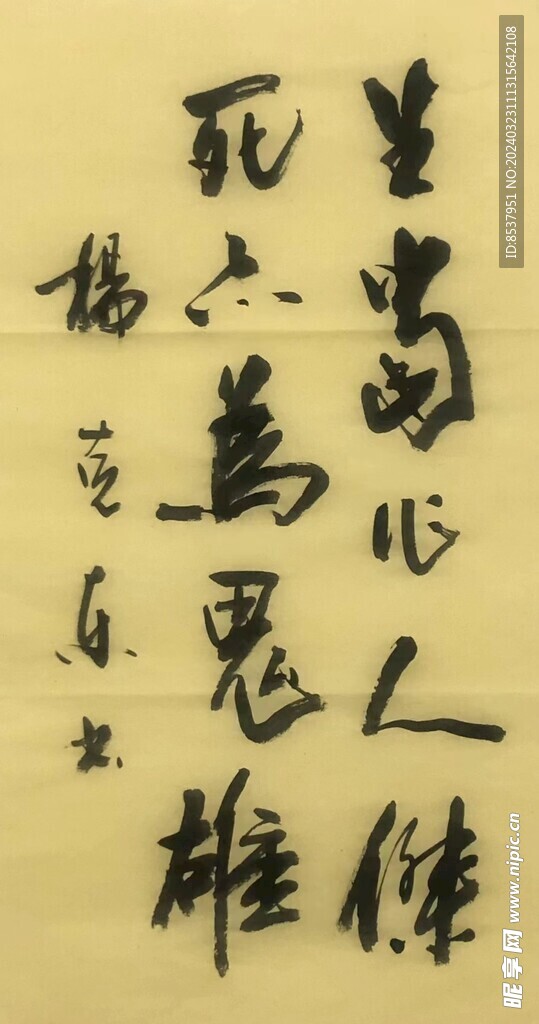 生當作人傑
死亦為鬼雄
楊克东书
ID:8537951 NO:20240323111315642108
昵享网 www.nipic.cn